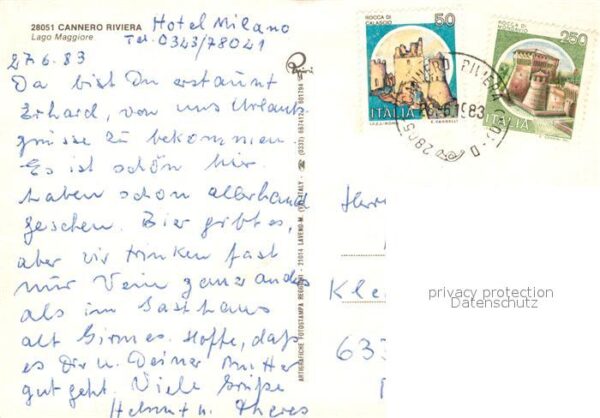 28051 CANNERO RIVIERA
Lago Maggiore
Hotel Milano
Tel. 0323/78021
27.6.83
Da bist Du erstaunt
Erhard, von uns Urlaubs-
grüsse zu bekommen.
Es ist schön hier
haben schon allerhand
gesehen. Bier gibt es,
aber wir trinken fast
nur Wein ganz anders
als im Gasthaus
alt Girmes. Hoffe, daß
es Dir u. Deiner Mutter
gut geht. Viele Grüße
Helmut u. Theres
ARTIGRAFICHE FOTOSTAMPA REGGIORI - 21014 LAVENO-M. (VA) ITALY
ROCCA DI CALASCIO
50
ITALIA
E. DONNELLI
ROCCA DI MONDAVIO
250
ITALIA
CANNERO RIVIERA
6.1983
Herr
Kle
633
privacy protection
Datenschutz